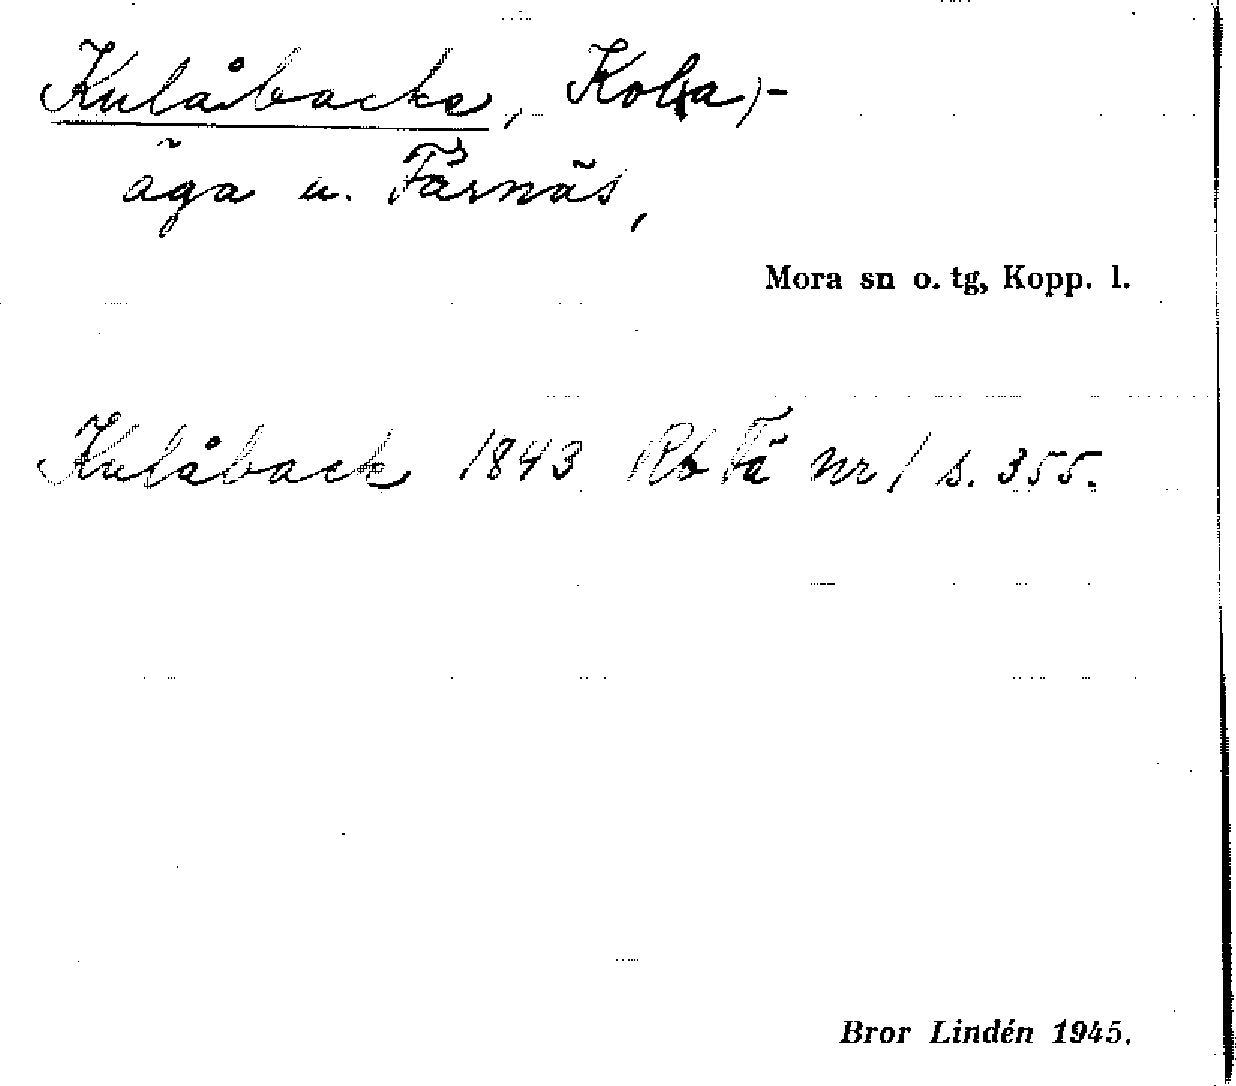 Kulåbacke, Kol(a)-
äga u. Färnäs,
Mora sn o. tg, Kopp. l.
Kulåback 1843 Rb Fä nr 1 s. 355.
Bror Lindén 1945.